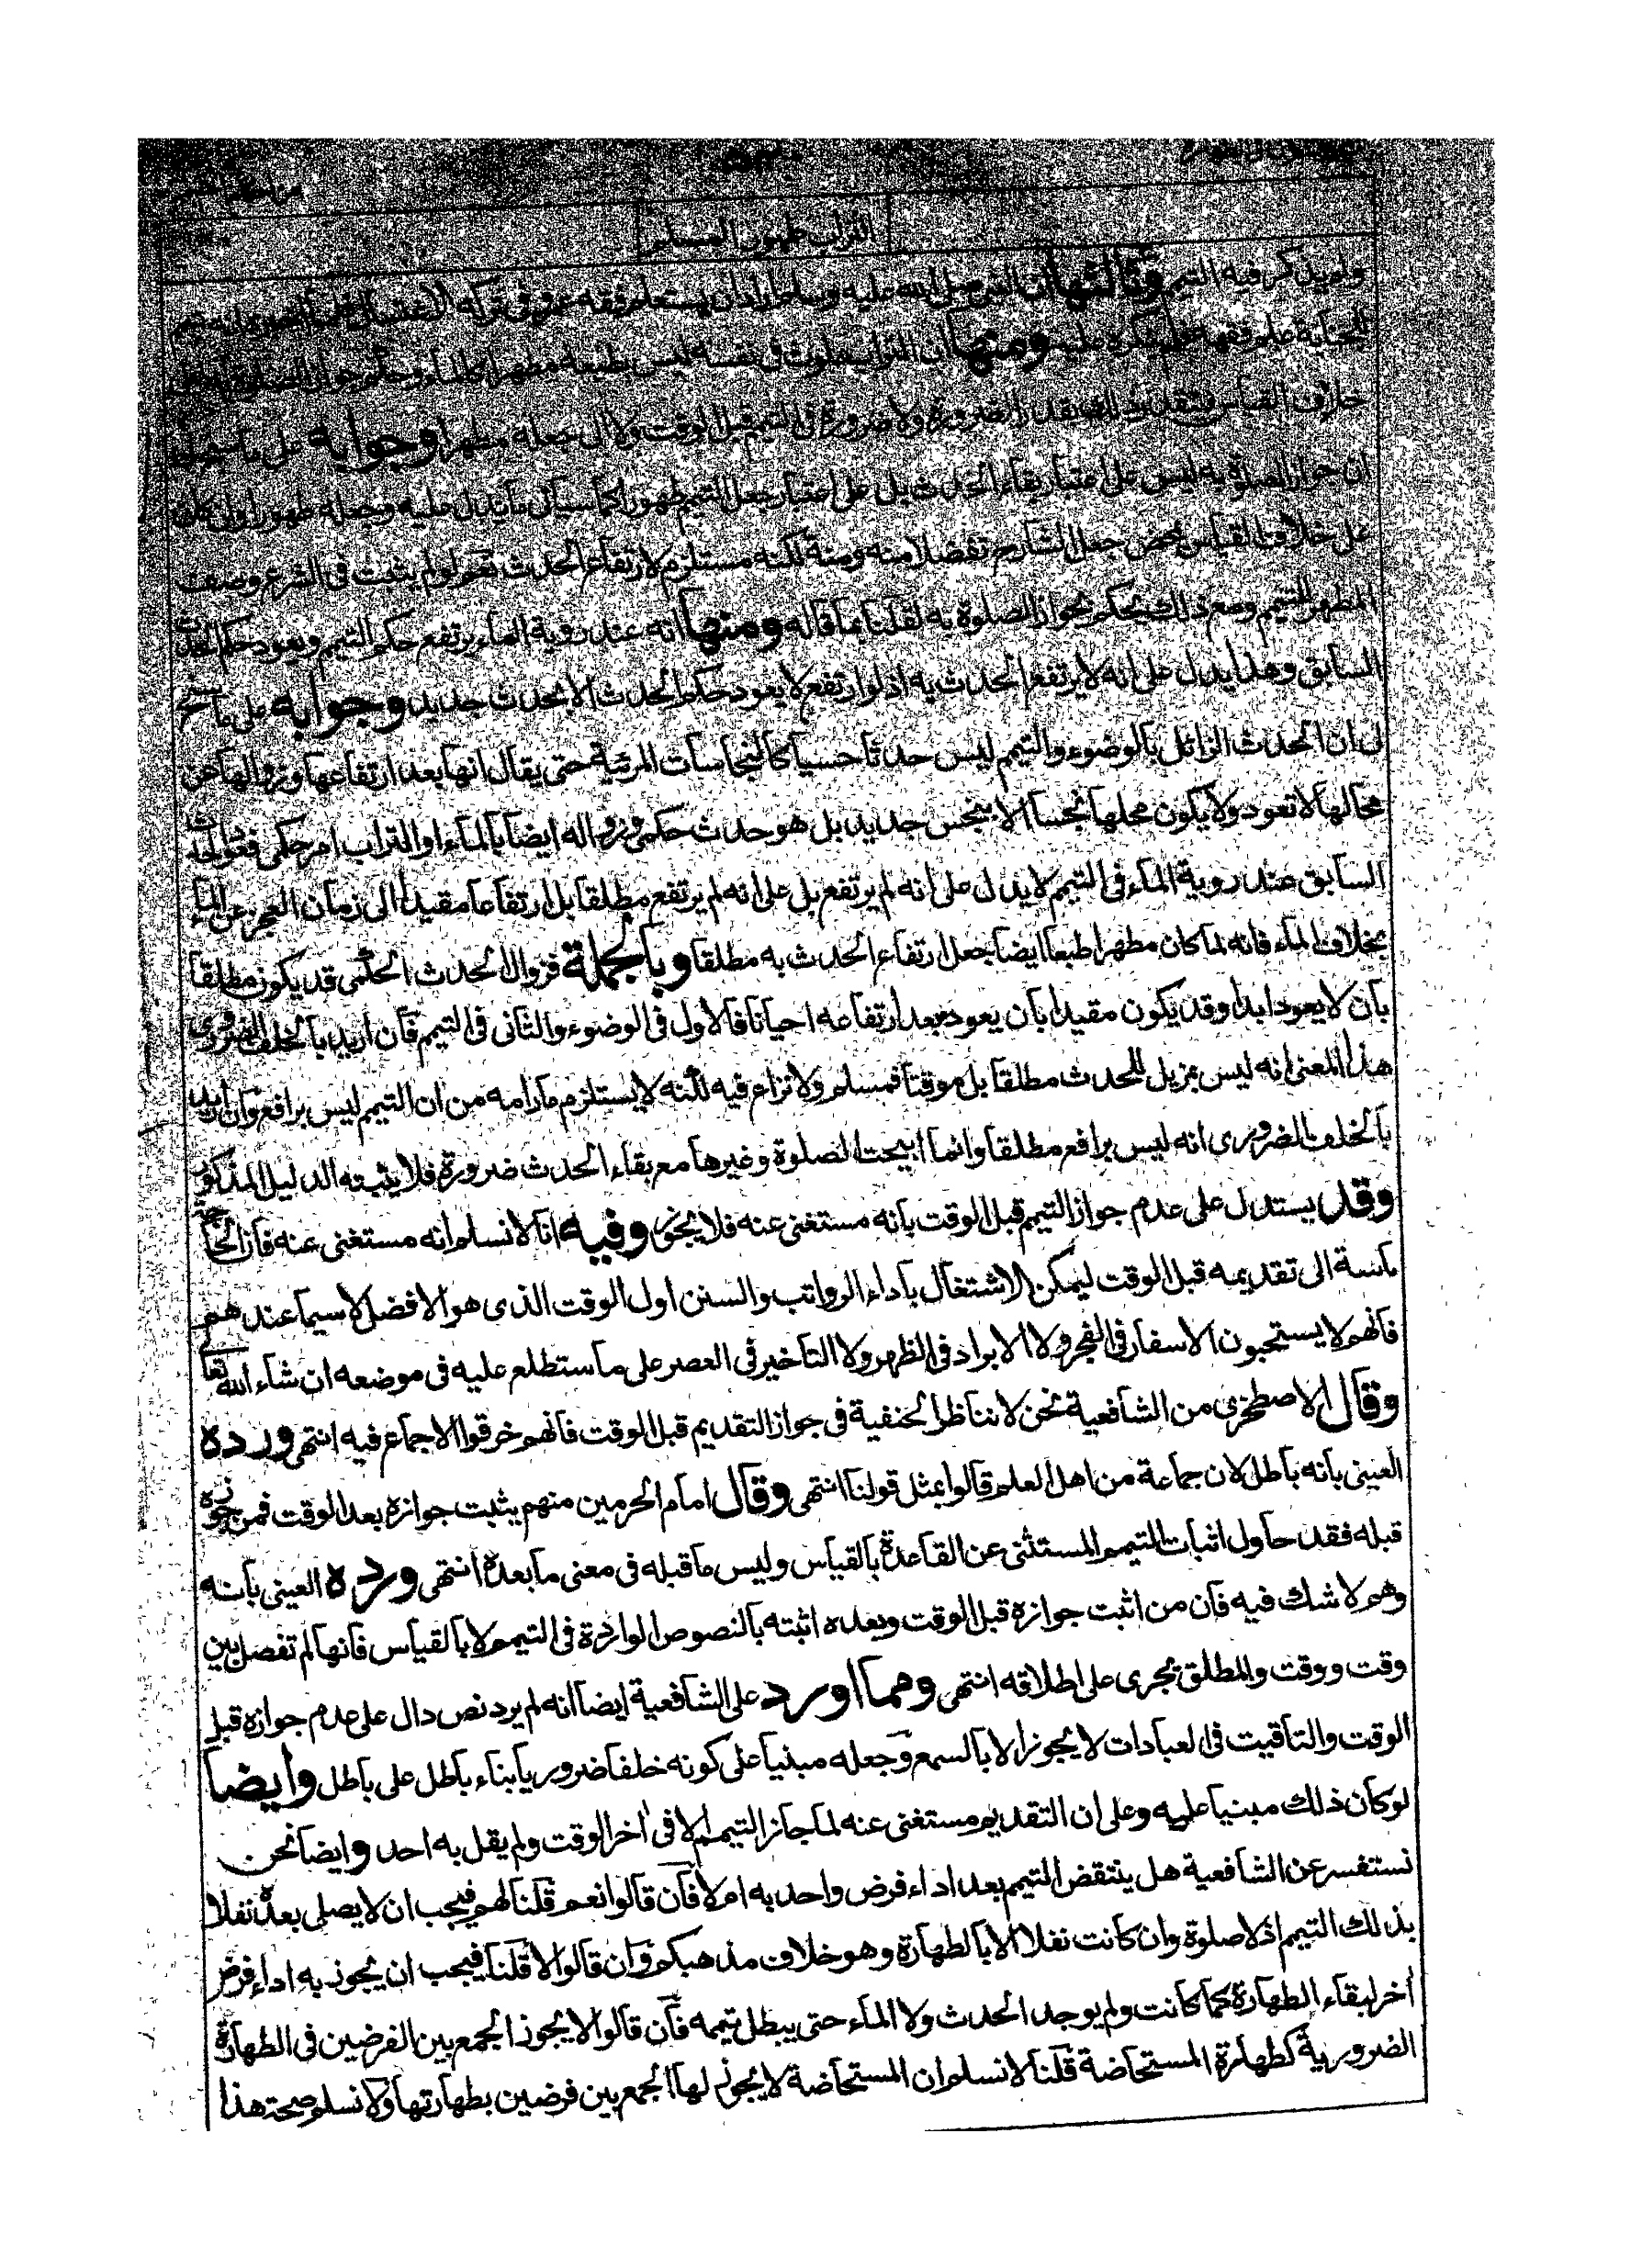 التراب طهور المسلم
ولم يذكر فيه التيمم وثالثها ان النبي صلى الله عليه وسلم اراد ان يستعلم فقه عمرو في تركه الاغتسال
للجنابة علم فقهه فلم ينكره عليه ومنها ان التراب ملوث في نفسه ليس بطبعه مطهرا كالماء وحكم جواز الصلوة به على
خلاف القياس فتقدر ذلك بقدر الضرورة ولا ضرورة في التيمم قبل الوقت ولا الى جعله مطهرا وجوابه على ما
ان جواز الصلوة به ليس على اعتبار بقاء الحدث بل على اعتبار جعل التيمم طهورا كما سياتي ما يدل عليه وجعله طهورا وان كان
على خلاف القياس بمحض جعل الشارع تفضلا منه ومنة لكنه مستلزم لارتفاع الحدث نعم لو لم يثبت في الشرع وصف
المطهر للتيمم ومع ذلك يحكم بجواز الصلوة به لقلنا ما قاله ومنها انه عند روية الماء يرتفع حكم التيمم ويعود حكم الحدث
السابق وهذا يدل على انه لا يرتفع الحدث به اذ لو ارتفع لا يعود حكم الحدث الا بحدث جديد وجوابه على ما سنح
لى ان الحدث الزائل بالوضوء والتيمم ليس حدثا حسيا كالنجاسات المرئية حتى يقال انها بعد ارتفاعها وزوالها عن
محالها لا تعود ولا يكون محلها نجسا الا بنجس جديد بل هو حدث حكمي وزواله ايضا بالماء او التراب امر حكمي فعود الحدث
السابق عند روية الماء في التيمم لا يدل على انه لم يرتفع بل على انه لم يرتفع مطلقا بل ارتفاعا مقيدا الى زمان العجز عن الماء
بخلاف الماء فانه لما كان مطهرا طبعا ايضا جعل ارتفاع الحدث به مطلقا وبالجملة فزوال الحدث الحكمي قد يكون مطلقا
بان لا يعود ابدا وقد يكون مقيدا بان يعود بعد ارتفاعه احيانا فالاول في الوضوء والثاني في التيمم فان اريد بالخلف الضروري
هذا المعنى انه ليس بمزيل للحدث مطلقا بل موقتا فمسلم ولا نزاع فيه لكنه لا يستلزم ما رامه من ان التيمم ليس برافع وان اريد
بالخلف الضروري انه ليس برافع مطلقا وانما ابيحت الصلوة وغيرها مع بقاء الحدث ضرورة فلا يثبته الدليل المذكور
وقد يستدل على عدم جواز التيمم قبل الوقت بانه مستغنى عنه فلا يجوز وفيه انا لا نسلم انه مستغنى عنه فان الحاجة
ماسة الى تقديمه قبل الوقت ليمكن الاشتغال باداء الرواتب والسنن اول الوقت الذي هو الافضل لا سيما عندهم
فانهم لا يستحبون الاسفار في الفجر ولا الابراد في الظهر ولا التاخير في العصر على ما ستطلع عليه في موضعه ان شاء الله تعالى
وقال الاصطخري من الشافعية نحن لا نناظر الحنفية في جواز التقديم قبل الوقت فانهم خرقوا الاجماع فيه انتهى ورده
العيني بانه باطل لان جماعة من اهل العلم قالوا بمثل قولنا انتهى وقال امام الحرمين منهم يثبت جوازه بعد الوقت فمن جوزه
قبله فقد حاول اثبات التيمم المستثنى عن القاعدة بالقياس وليس ما قبله في معنى ما بعده انتهى ورده العيني بانه
وهم لا شك فيه فان من اثبت جوازه قبل الوقت وبعده اثبته بالنصوص الواردة في التيمم لا بالقياس فانها لم تفصل بين
وقت ووقت والمطلق يجرى على اطلاقه انتهى ومما اورد على الشافعية ايضا انه لم يرد نص دال على عدم جوازه قبل
الوقت والتاقيت في العبادات لا يجوز الا بالسمع وجعله مبنيا على كونه خلفا ضروريا بناء باطل على باطل وايضا
لو كان ذلك مبنيا عليه وعلى ان التقديم مستغنى عنه لما جاز التيمم الا في اخر الوقت ولم يقل به احد وايضا نحن
نستفسر عن الشافعية هل ينتقض التيمم بعد اداء فرض واحد به ام لا فان قالوا نعم قلنا لهم فيجب ان لا يصلى بعده نفلا
بذلك التيمم اذ لا صلوة وان كانت نفلا الا بالطهارة وهو خلاف مذهبكم وان قالوا لا قلنا فيجب ان يجوز به اداء فرض
اخر لبقاء الطهارة كما كانت ولم يوجد الحدث ولا الماء حتى يبطل تيممه فان قالوا لا يجوز الجمع بين الفرضين في الطهارة
الضرورية كطهارة المستحاضة قلنا لا نسلم ان المستحاضة لا يجوز لها الجمع بين فرضين بطهارتها ولا نسلم صحة هذا